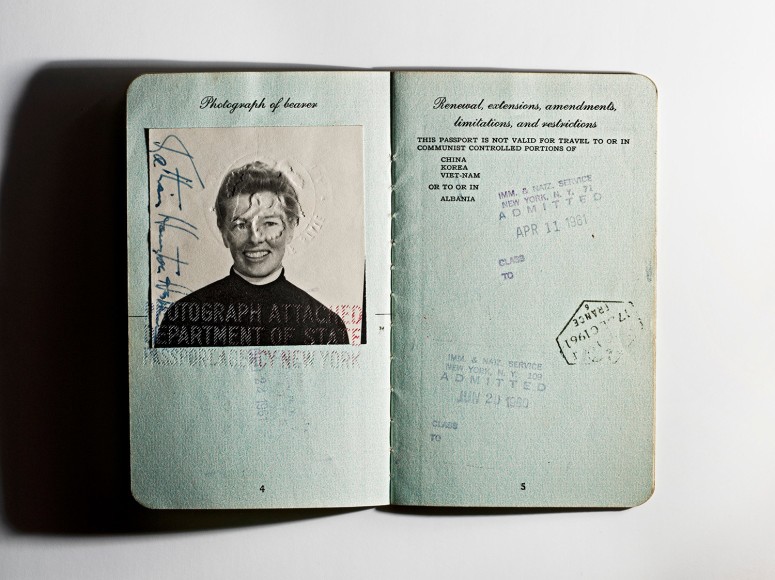 Photograph of bearer
Katharine Houghton Hepburn
PHOTOGRAPH ATTACHED
DEPARTMENT OF STATE
PASSPORT AGENCY NEW YORK
4
Renewal, extensions, amendments,
limitations, and restrictions
THIS PASSPORT IS NOT VALID FOR TRAVEL TO OR IN
COMMUNIST CONTROLLED PORTIONS OF
CHINA
KOREA
VIET-NAM
OR TO OR IN
ALBANIA
IMM. & NATZ. SERVICE
NEW YORK, N. Y. 71
ADMITTED
APR 11 1961
CLASS
TO
FRANCE
1961
IMM. & NATZ. SERVICE
NEW YORK, N. Y. 109
ADMITTED
JUN 20 1960
CLASS
TO
5